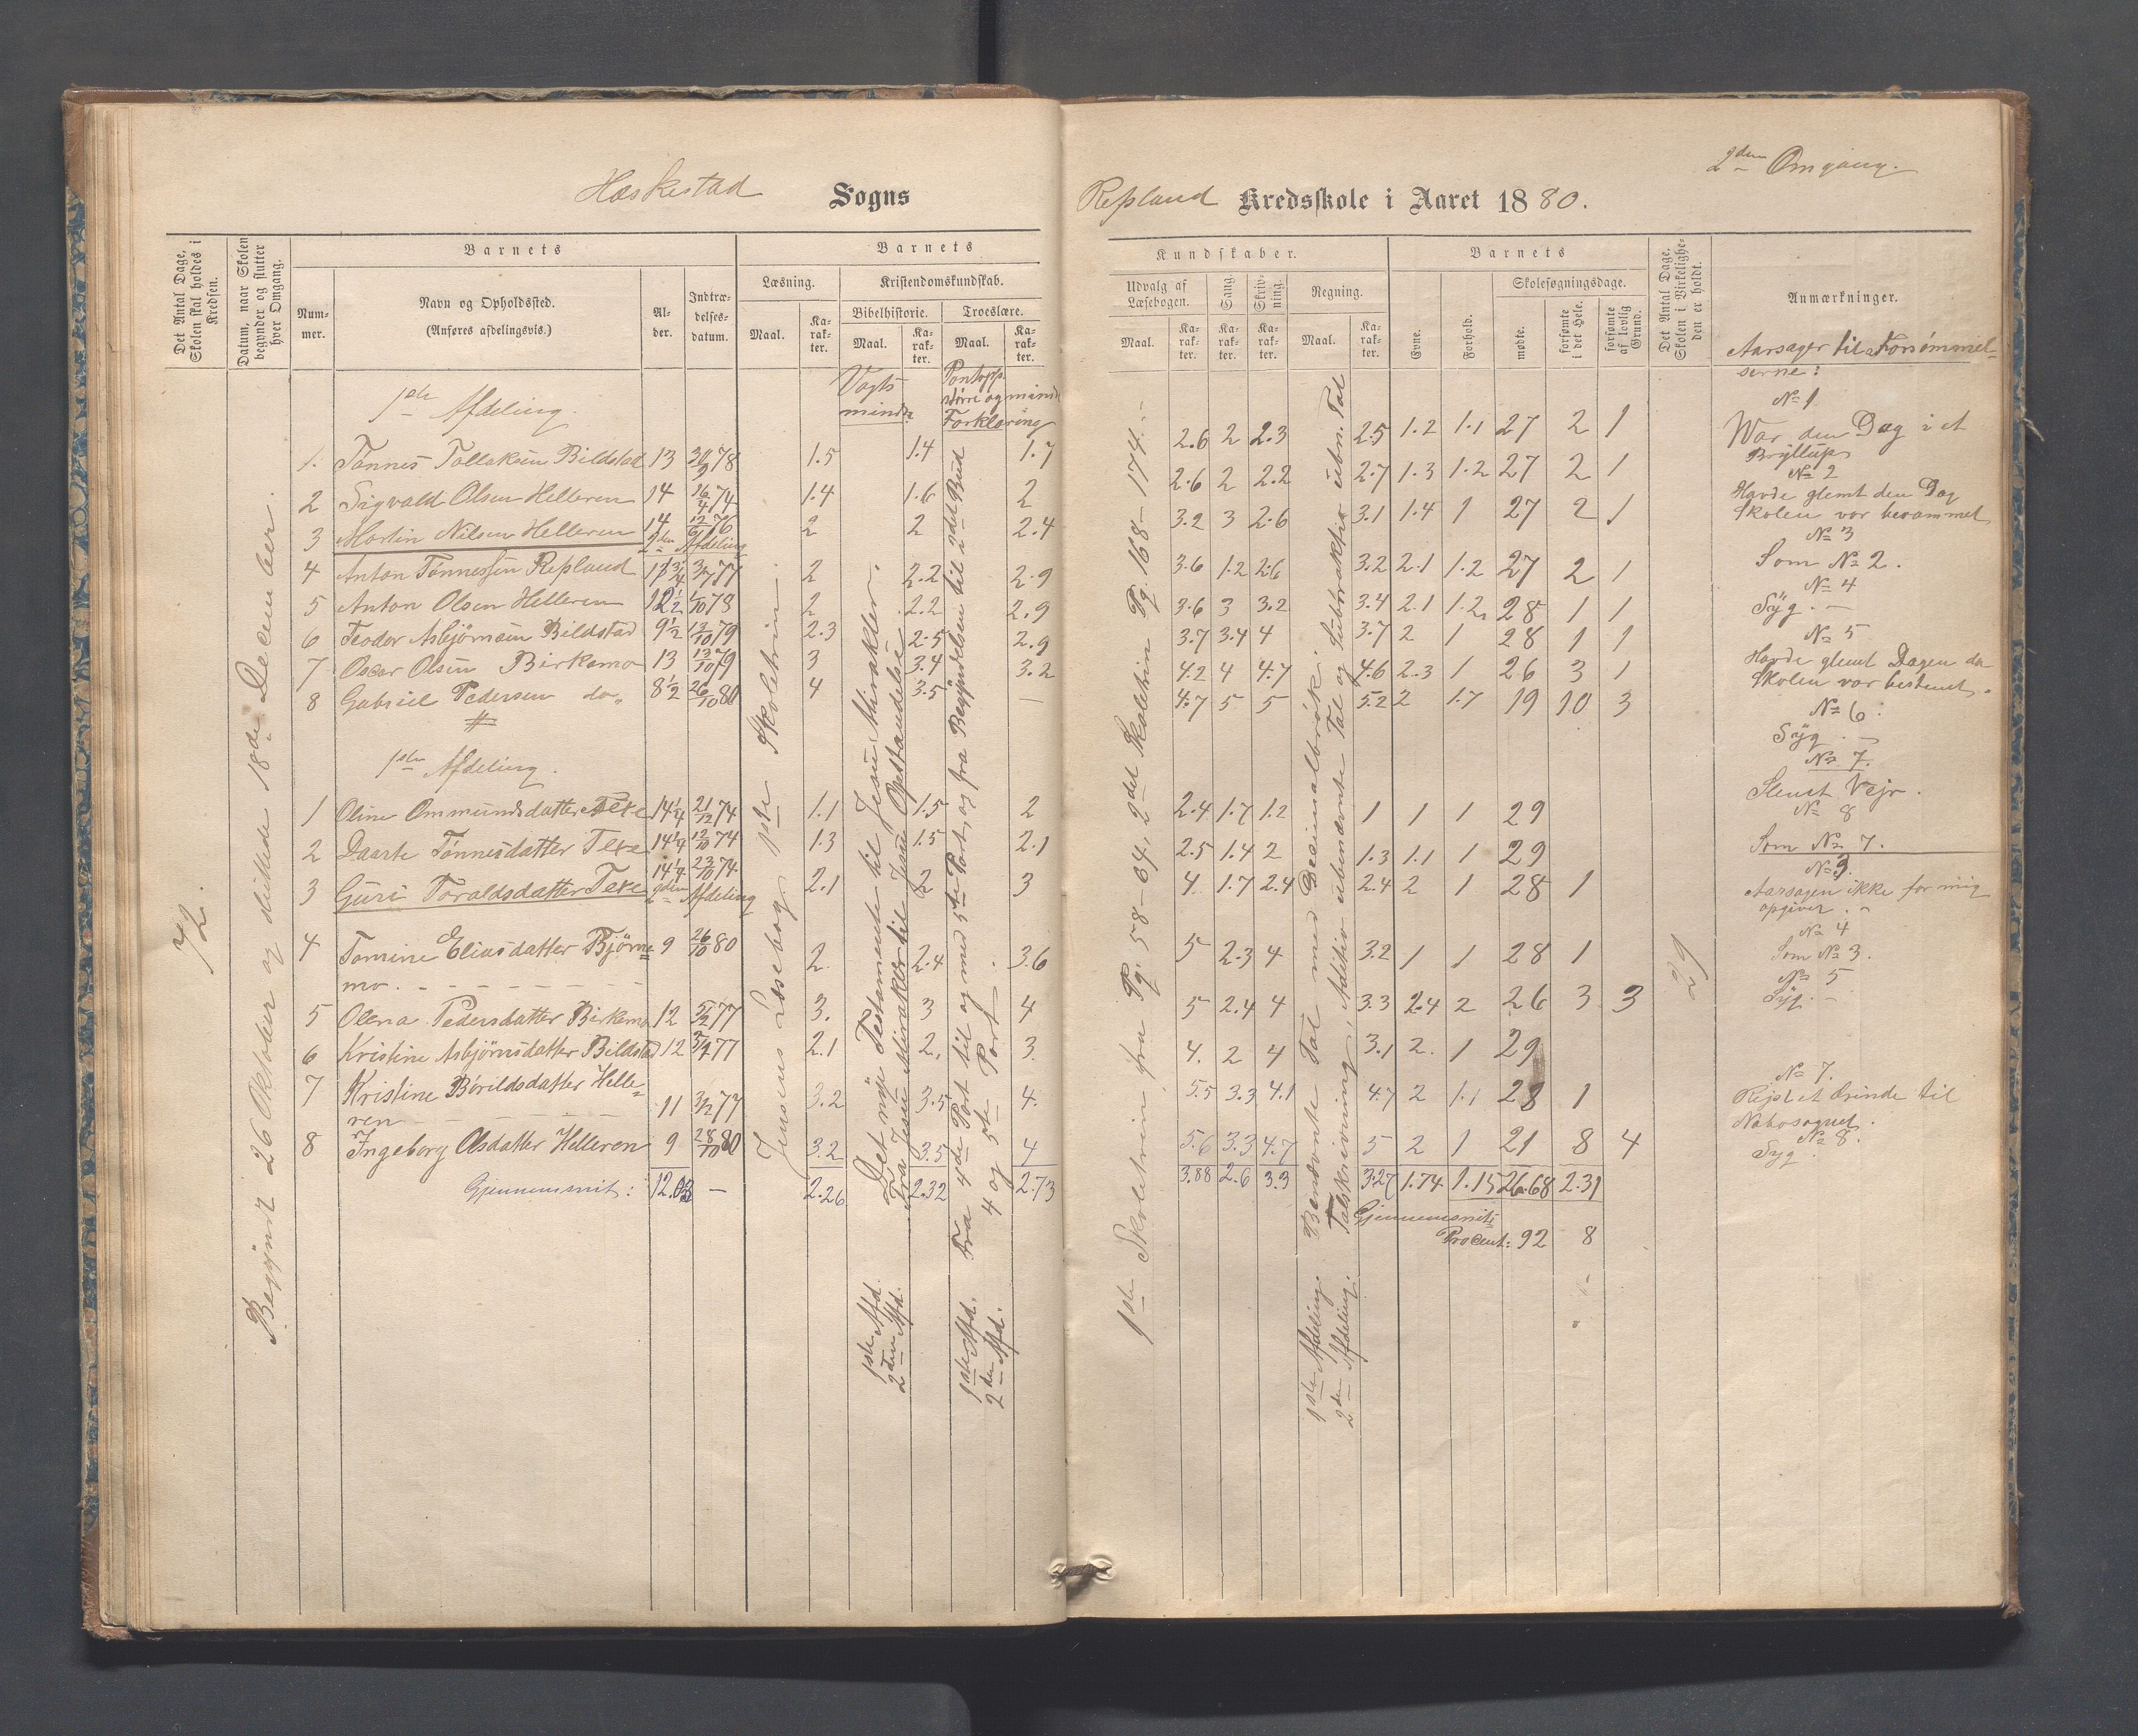 2den Omgang.
Heskestad Sogns
Repsland Kredsskole i Aaret 1880.
Det Antal Dage, Skolen skal holdes i Kredsen.
Datum, naar Skolen begynder og slutter hver Omgang.
Barnets
Nummer.
Navn og Opholdssted.
(Anføres afdelingsvis.)
Alder.
Indtrædelsesdatum.
Barnets
Læsning.
Maal.
Karakter.
Kristendomskundskab.
Bibelhistorie.
Maal.
Karakter.
Troeslære.
Maal.
Karakter.
Kundskaber.
Udvalg af Læsebogen.
Maal.
Karakter.
Sang
Karakter.
Skrivning.
Karakter.
Regning.
Maal.
Karakter.
Barnets
Evne.
Forhold.
Skolesøgningsdage.
mødte.
forsømte i det Hele.
forsømte af lovlig Grund.
Det Antal Dage, Skolen i Virkeligheden er holdt.
Anmærkninger.
72.
Begyndt 26 Oktober og sluttede 18de December.
Jensens Læsebog 1ste Skoletrin.
Vogts mindre.
1ste Afd. Det nye Testamente til Jesu Mirakler.
2den Afd. Fra Jesu Mirakler til Jesu Opstandelse
Pontopp. større og mindre Forklaring
1ste Afd. Fra 4de Part til og med 5te Part, og fra Begyndelsen til 2det Bud
2den Afd. 4 og 5te Part.
1ste Skoletrin fra Pg. 58-64, 2det Skoletrin Pg. 168-174.-
1ste Afdeling. Benævnte Tal med Decimalbrøk.
2den Afdeling. Talskrivning, Aditio ubenævnte Tal og Subtraktio ubn. Tal
29
1ste Afdeling.
1. Tønnes Tollaksen Bildstad 13 30/9 78 1.5 1.4 1.7 2.6 2 2.3 2.5 1.2 1.1 27 2 1
2 Sigvald Olsen Helleren 14 16/4 74 1.4 1.6 2 2.6 2 2.2 2.7 1.3 1.2 27 2 1
3 Martin Nilsen Helleren 14 12/6 76 2 2 2.4 3.2 3 2.6 3.1 1.4 1 27 2 1
2den Afdeling
4 Anton Tønnessen Repsland 11 3/4 3/7 77 2 2.2 2.9 3.6 1.2 2.6 3.2 2.1 1.2 27 2 1
5 Anton Olsen Helleren 12 1/2 1/10 78 2 2.2 2.9 3.6 3 3.2 3.4 2.1 1.2 28 1 1
6 Teodor Asbjørnsen Bildstad 9 1/2 13/10 79 2.3 2.5 2.9 3.7 3.4 4 3.7 2 1 28 1 1
7 Oscar Olsen Birkemo 13 13/10 79 3 3.4 3.2 4.2 4 4.7 4.6 2.3 1 26 3 1
8 Gabriel Pedersen do„ 8 1/2 26/10 80 4 3.5 — 4.7 5 5 5.2 2 1.7 19 10 3
1ste Afdeling.
1 Oline Ommundsdatter Texe 14 1/4 21/12 74 1.1 1.5 2 2.4 1.7 1.2 1 1 1 29
2 Daarte Tønnesdatter Texe 14 1/4 12/10 74 1.3 1.5 2.1 2.5 1.4 2 1.3 1.1 1 29
3 Guri Toraldsdatter Texe 14 1/4 23/10 74 2.1 2 3 4. 1.7 2.4 2.4 2 1 28 1
2den Afdeling
4 Tomine Eliasdatter Bjørne= 9 26/10 80 2. 2.4 3.6 5 2.3 4 3.2 1 1 28 1
mo. - - - - - -
5 Olena Pedersdatter Birkemo 12 5/2 77 3. 3 4 5 2.4 4 3.3 2.4 2 26 3 3
6 Kristine Asbjørnsdatter Bildstad 12 3/7 77 2.1 2. 3. 4. 2 4 3.1 2. 1 29
7 Kristine Børildsdatter Helle=
ren - - - - 11 3/7 77 3.2 3.5 4. 5.5 3.3 4.1 4.7 2 1.1 28 1
8 Ingeborg Olsdatter Helleren 9 28/10 80 3.2 3.5 4 5.6 3.3 4.7 5 2 1 21 8 4
Gjennemsnit: 12.03 — 2.26 2.32 2.73 3.88 2.6 3.3 3.27 1.74 1.15 26.68 2.31
Gjennemsnits
Procent: 92 8
Aarsager til Forsømmel=
serne:
No 1
War den Dag i et
Bryllup
No 2
Havde glemt den Dag
Skolen var berammet
No 3
Som No 2.
No 4
Syg. —
No 5
Havde glemt Dagen da
Skolen var bestemt.
No 6:
Syg. —
No 7.
Slemt Vejr.
No 8
Som No 7.
No 3.
Aarsagen ikke for mig
opgiven.
No 4
Som No 3.
No 5
Syg. —
No 7.
Rejst et Ærinde til
Nabosognet.
No 8.
Syg.